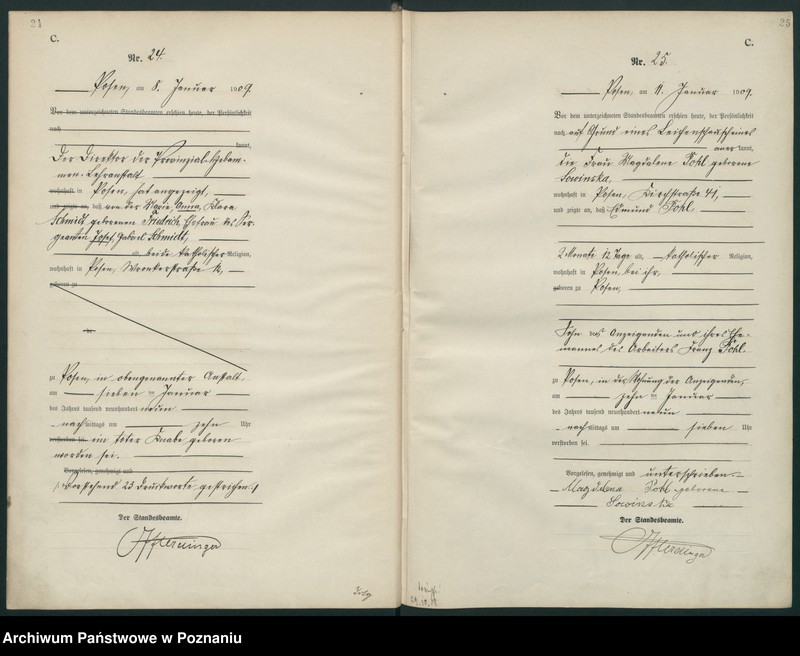 24
C.
Nr. 24.
Posen, am 8. Januar 1909.
Vor dem unterzeichneten Standesbeamten erschien heute, der Persönlichkeit
nach
kannt,
Der Direktor der Provinzial-Hebam-
men-Lehranstalt
wohnhaft in Posen, hat angezeigt,
und zeigte an, daß von der Marie, Anna, Klara
Schmidt, geborenen Friedrich, Ehefrau des Ser-
geanten Josef, Gabriel Schmidt,
alt, beide katholischer Religion,
wohnhaft in Posen, Wronkerstraße
geboren zu
der
zu Posen, in obengenannter Anstalt,
am sieben ten Januar
des Jahres tausend neunhundert neun
nachmittags um zehn Uhr
verstorben sei. ein toter Knabe geboren
worden sei.
Vorgelesen, genehmigt und
(Vorstehend 23 Druckworte gestrichen.)
Der Standesbeamte.
25
C.
Nr. 25.
Posen, am 11. Januar 1909.
Vor dem unterzeichneten Standesbeamten erschien heute, der Persönlichkeit
nach auf Grund eines Leichenschauscheines
aner kannt,
die Frau Magdalene Pohl geborene
Sowinska,
wohnhaft in Posen, 41,
und zeigte an, daß Edmund Pohl,
2 Monate 12 Tage alt, katholischer Religion,
wohnhaft in Posen, bei ihr,
geboren zu Posen,
Sohn der Anzeigenden und ihres Ehe-
mannes des Arbeiters Franz Pohl.
zu Posen, in der Wohnung der Anzeigenden,
am zehn ten Januar
des Jahres tausend neunhundert neun
nachmittags um sieben Uhr
verstorben sei.
Vorgelesen, genehmigt und unterschrieben.
Magdalena Pohl geborene
Sowinska
Der Standesbeamte.
Archiwum Państwowe w Poznaniu